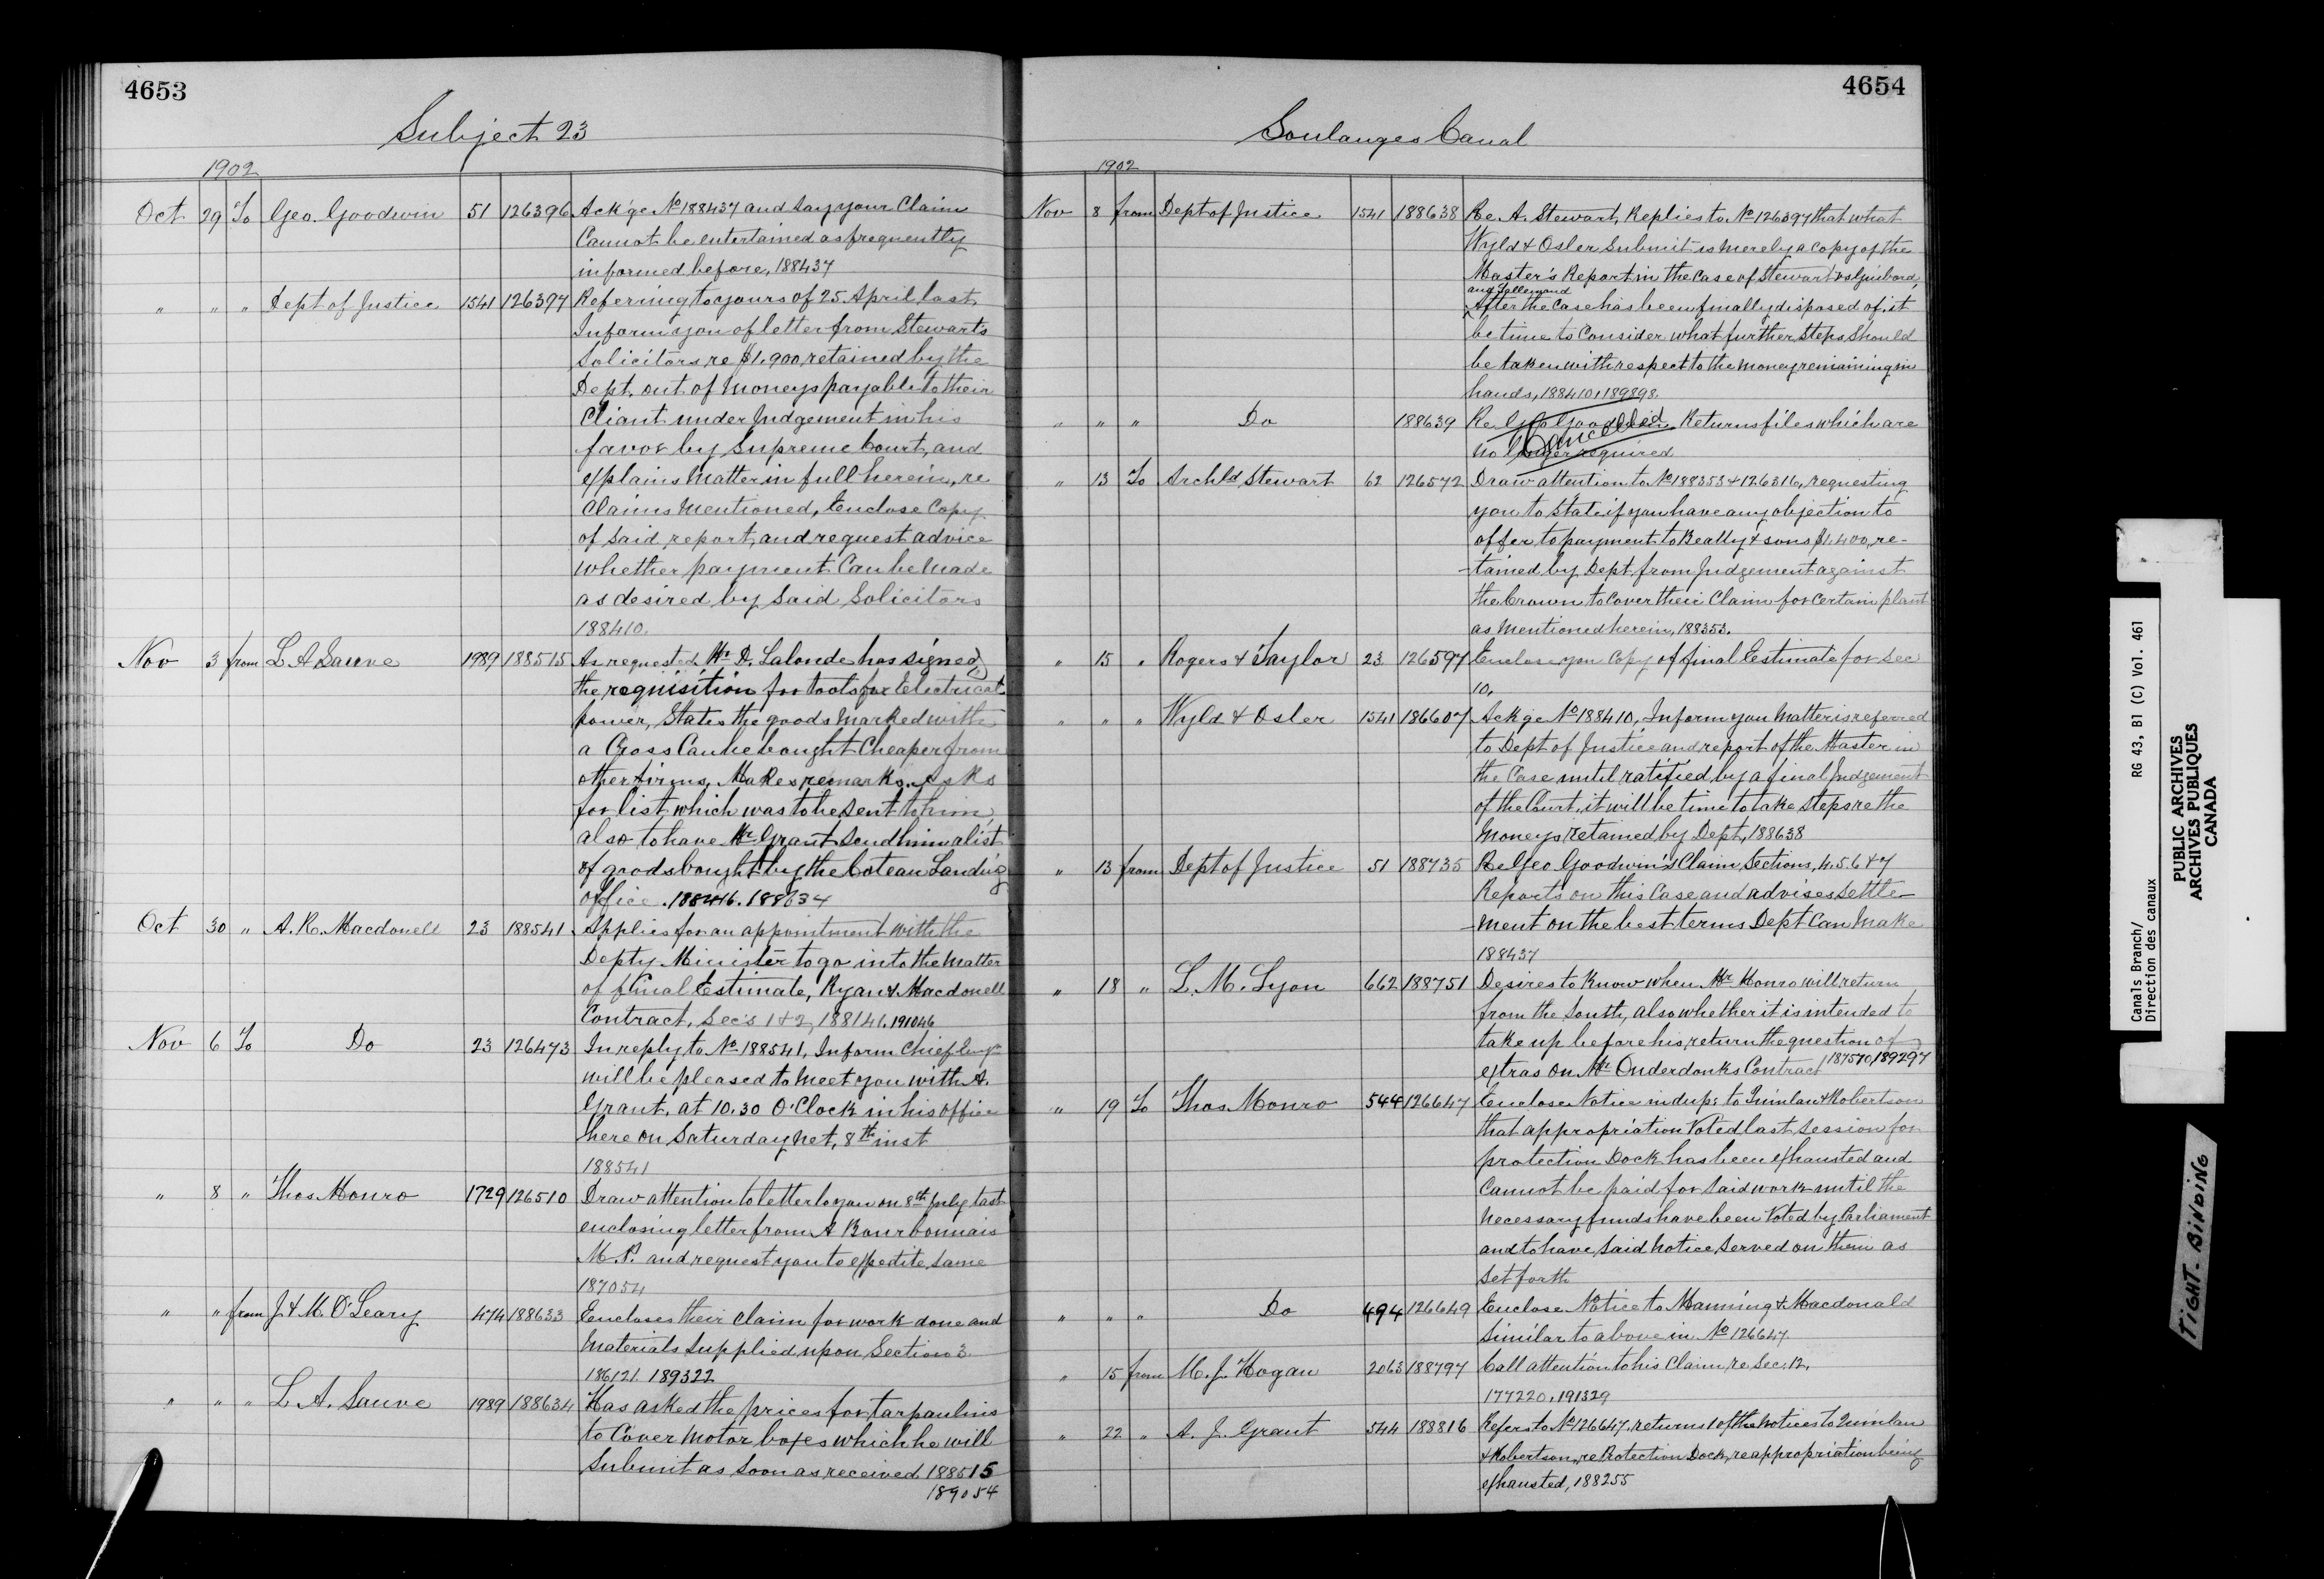 4653
Subject 23
1902
Oct 29 To Geo. Goodwin 51 126396 Ack'ge No 188437 and say your Claim
Cannot be entertained as frequently
informed before, 188437
" " " Dept of Justice 1541 126397 Refering to yours of 25 April last
Inform you of letter from Stewarts
Solicitors re $1.900 retained by the
Dept. out of Moneys payable to their
Cliant under Judgement in his
favor by Supreme Court, and
explains Matter in full herein, re
Claims Mentioned, Enclose Copy
of said report, and request advice
whether payment Can be Made
as desired by Said Solicitors
188410.
Nov 3 from L A Sauve 1989 188515 As requested, Mr D. Lalonde has signed
the requisition for tools for Electrical
power, States the goods Marked with
a Cross Can be bought Cheaper from
other firms, Makes remarks. Asks
for list which was to be sent to him,
also to have Mr Grant send him a list
of goods bought by the Coteau Landi'g
office. 188416. 188634
Oct 30 " A. R. Macdonell 23 188541 Applies for an appointment with the
Depty Minister to go into the Matter
of final Estimate, Ryan & Macdonell
Contract, Sec's 1 & 2, 188141. 191046
Nov 6 To Do 23 126473 In reply to No 188541, Inform Chief Eng'r
will be pleased to Meet you with A.
Grant, at 10.30 O'Clock in his office
here on Saturday net, 8th inst
188541
" 8 " Thos Monro 1729 126510 Draw attention to letter to you on 8th July last
enclosing letter from A Bourbonnais
M.P. and request you to expedite same
187054
" " from J & M. O'Leary 474 188633 Encloses their Claim for work done and
Materials supplied upon Section 3
186121. 189322
" " " L. A. Sauve 1989 188634 Has asked the prices for tarpaulins
to Cover Motor boxes which he will
Submit as soon as received 188515
189054
4654
Soulanges Canal
1902
Nov 8 from Dept of Justice 1541 188638 Re A. Stewart, Replies to No 126397 that what
Wyld & Osler Submit is Merely a Copy of the
Master's Report in the Case of Stewart vs Guibord,
and Lallemand
After the Case has been finally disposed of, it
be time to Consider what further Steps Should
be taken with respect to the Money remaining in
hands, 188410, 189898.
" " " Do 188639 Re Geo Goodwin Returns files which are
Cancelled
no longer required
" 13 To Archld Stewart 62 126572 Draw attention to No 188353 & 126316, requesting
you to State if you have any objection to
offer to payment to Beatty & sons $1.400, re-
-tained by Dept from Judgement against
the Crown to Cover their Claim for Certain plant
as Mentioned herein, 188353.
" 15 " Rogers & Taylor 23 126597 Enclose you Copy of final Estimate for Sec
10.
" " " Wyld & Osler 1541 186607 Ackge No 188410, Inform you Matter is referred
to Dept of Justice and report of the Master in
the Case until ratified by a final Judgement
of the Court, it will be time to take Steps re the
Moneys retained by Dept, 188638
" 13 from Dept of Justice 51 188735 Re Geo Goodwin's Claim, Sections, 4. 5. 6 & 7
Reports on this Case and advises settle-
-ment on the best terms Dept Can Make
188437
" 18 " L. M. Lyon 662 188751 Desires to Know when Mr Monro will return
from the South, also whether it is intended to
take up before his return the question of
extras on Mr Onderdonks Contract 187570, 189297
" 19 To Thos Monro 544 126647 Enclose Notice in dup: to Quinlan & Robertson
that appropriation Voted last Session for
protection Dock has been exhausted and
Cannot be paid for Said work until the
Necessary funds have been Voted by Parliament
and to have Said Notice Served on them as
set forth
" " " Do 494 126649 Enclose Notice to Manning & Macdonald
Similar to above in No 126647
" 15 from M. J. Hogan 2063 188797 Call attention to his Claim re Sec. 12.
177220, 191329
" 22 " A. J. Grant 544 188816 Refers to No 126647, returns 1 of the Notices to Quinlan
& Robertson, re Protection Dock, re appropriation being
exhausted, 188255
Canals Branch/ RG 43, B1 (C) Vol. 461
Direction des canaux
PUBLIC ARCHIVES
ARCHIVES PUBLIQUES
CANADA
TIGHT-BINDING